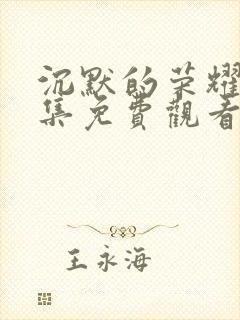 沉默的荣耀
集免費觀看
王永海